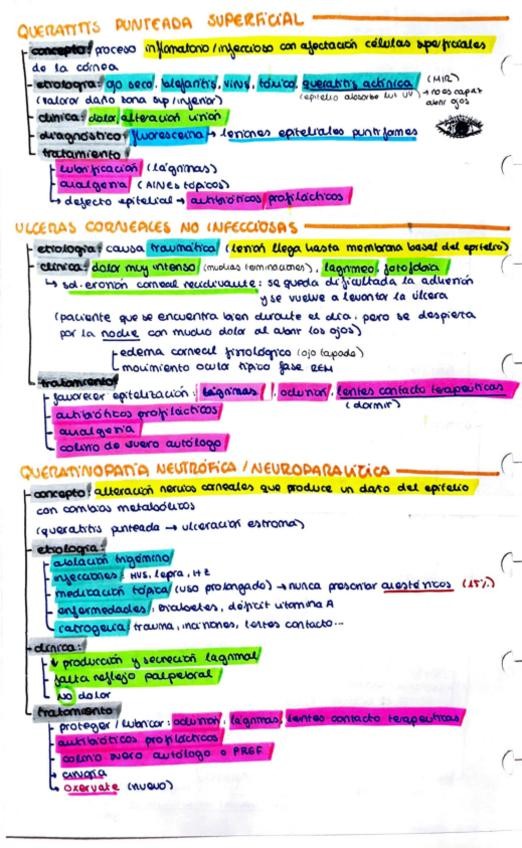 QUERATITIS PUNTEADA SUPERFICIAL
concepto: proceso inflamatorio/infeccioso con afectación células superficiales
de la córnea
etiología: ojo seco, blefaritis, virus, tóxico, queratitis actínica (MIR)
(valorar daño zona sup/inferior) (epitelio absorbe luz UV) → no es capaz abrir ojos
clínica: dolor, alteración unión
diagnóstico: fluoresceína → lesiones epiteliales puntiformes
tratamiento
lubrificación (lágrimas)
analgesia (AINEs tópicos)
↳ defecto epitelial → antibióticos profilácticos
ULCERAS CORNEALES NO INFECCIOSAS
etiología: causa traumática (lesión llega hasta membrana basal del epitelio)
clínica: dolor muy intenso (muchas terminaciones), lagrimeo, fotofobia
↳ sd. erosión corneal recidivante: se queda dificultada la adhesión
y se vuelve a levantar la úlcera
(paciente que se encuentra bien durante el día, pero se despierta
por la noche con mucho dolor al abrir los ojos)
edema corneal fisiológico (ojo tapado)
movimiento ocular típico fase REM
tratamiento
favorecer epitelización: lágrimas, oclusión, lentes contacto terapeúticas
(dormir)
antibióticos profilácticos
analgesia
colirio de suero autólogo
QUERATINOPATÍA NEUTRÓFICA/NEUROPARALÍTICA
concepto: alteración nervios corneales que produce un daño del epitelio
con cambios metabólicos
(queratitis punteada → ulceración estroma)
etiología:
ablación trigémino
infecciones: HVS, lepra, HZ
medicación tópica (uso prolongado) → nunca prescribir anestésicos
enfermedades: diabetes, déficit vitamina A
iatrogenia: trauma, incisiones, lentes contacto...
clínica:
↓ producción y secreción lagrimal
falta reflejo palpebral
NO dolor
tratamiento
proteger/lubricar: oclusión, lágrimas, lentes contacto terapeúticas
antibióticos profilácticos
colirio suero autólogo o PRGF
cirugía
oxervate (nuevo)